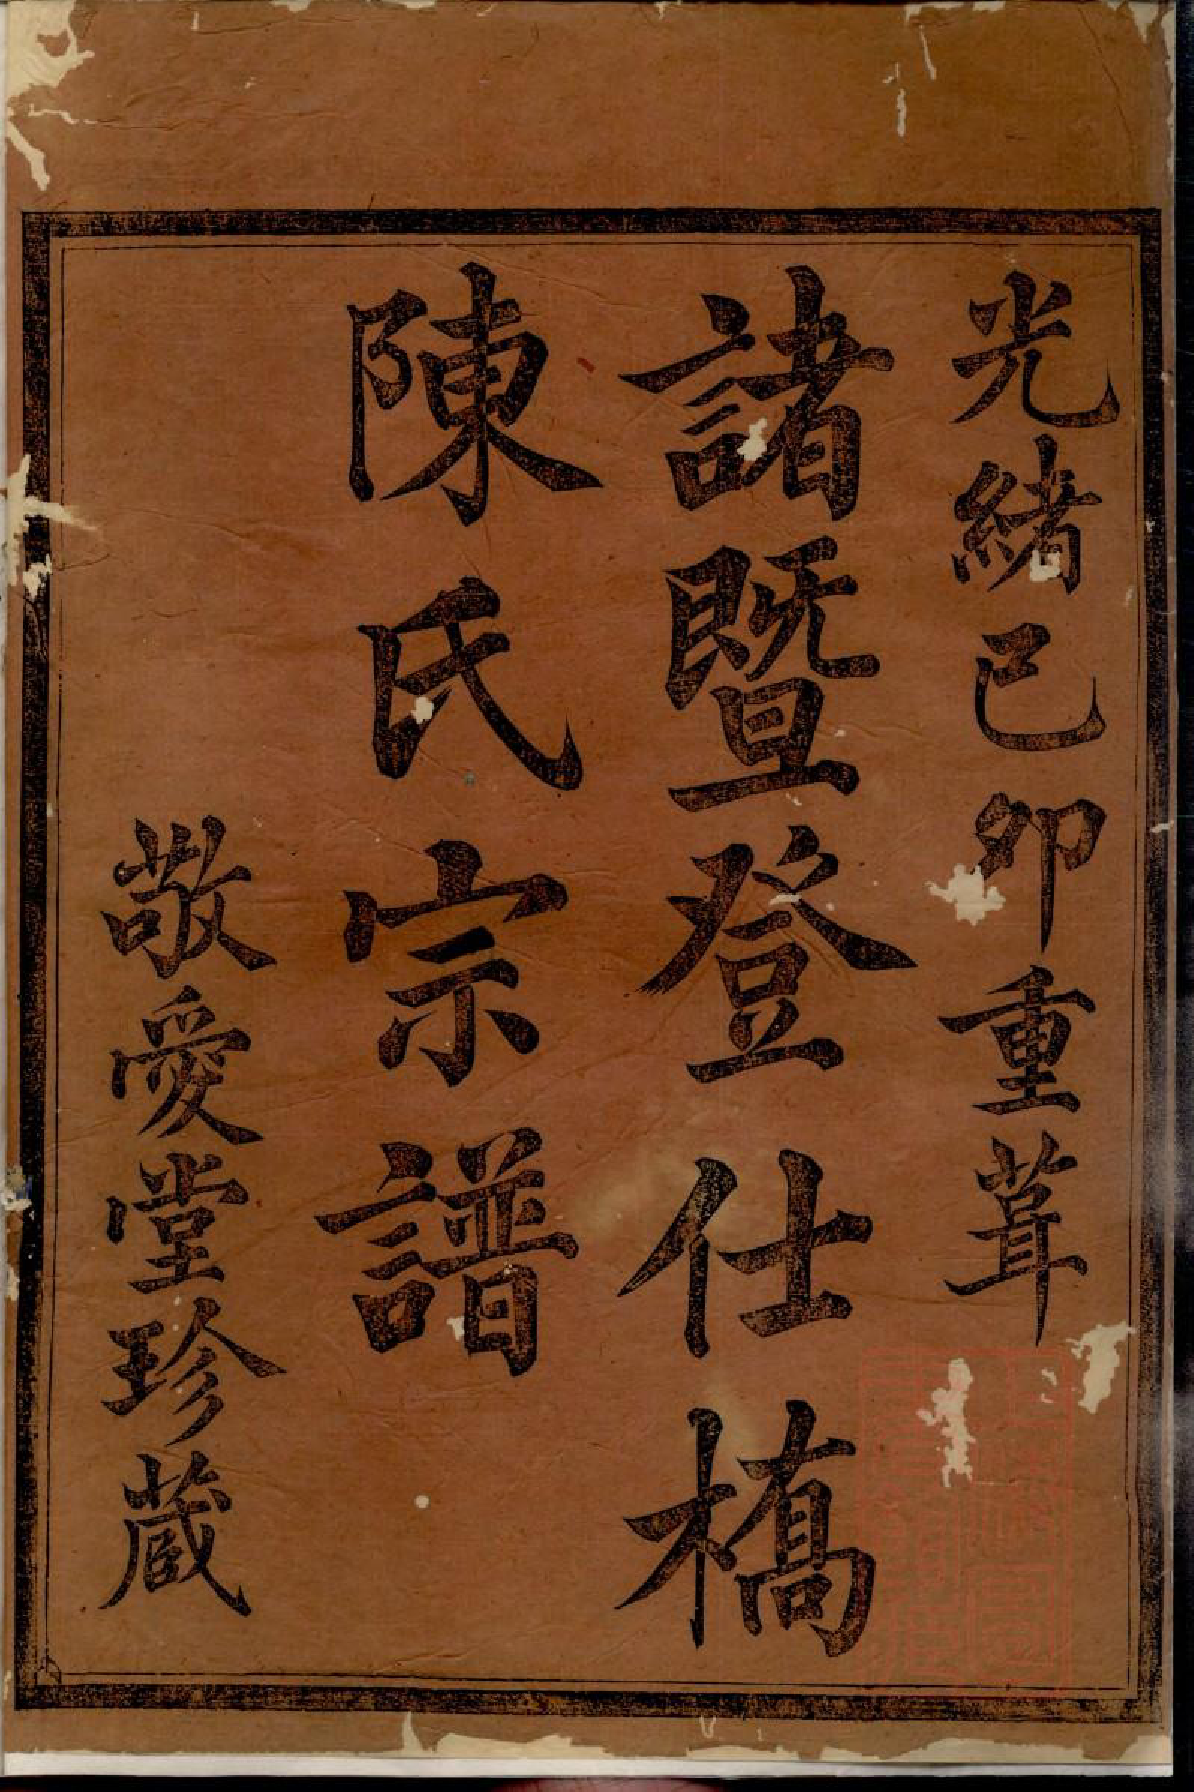 光緒己卯重葺
諸暨登仕橋
陳氏宗譜
敬愛堂珍藏